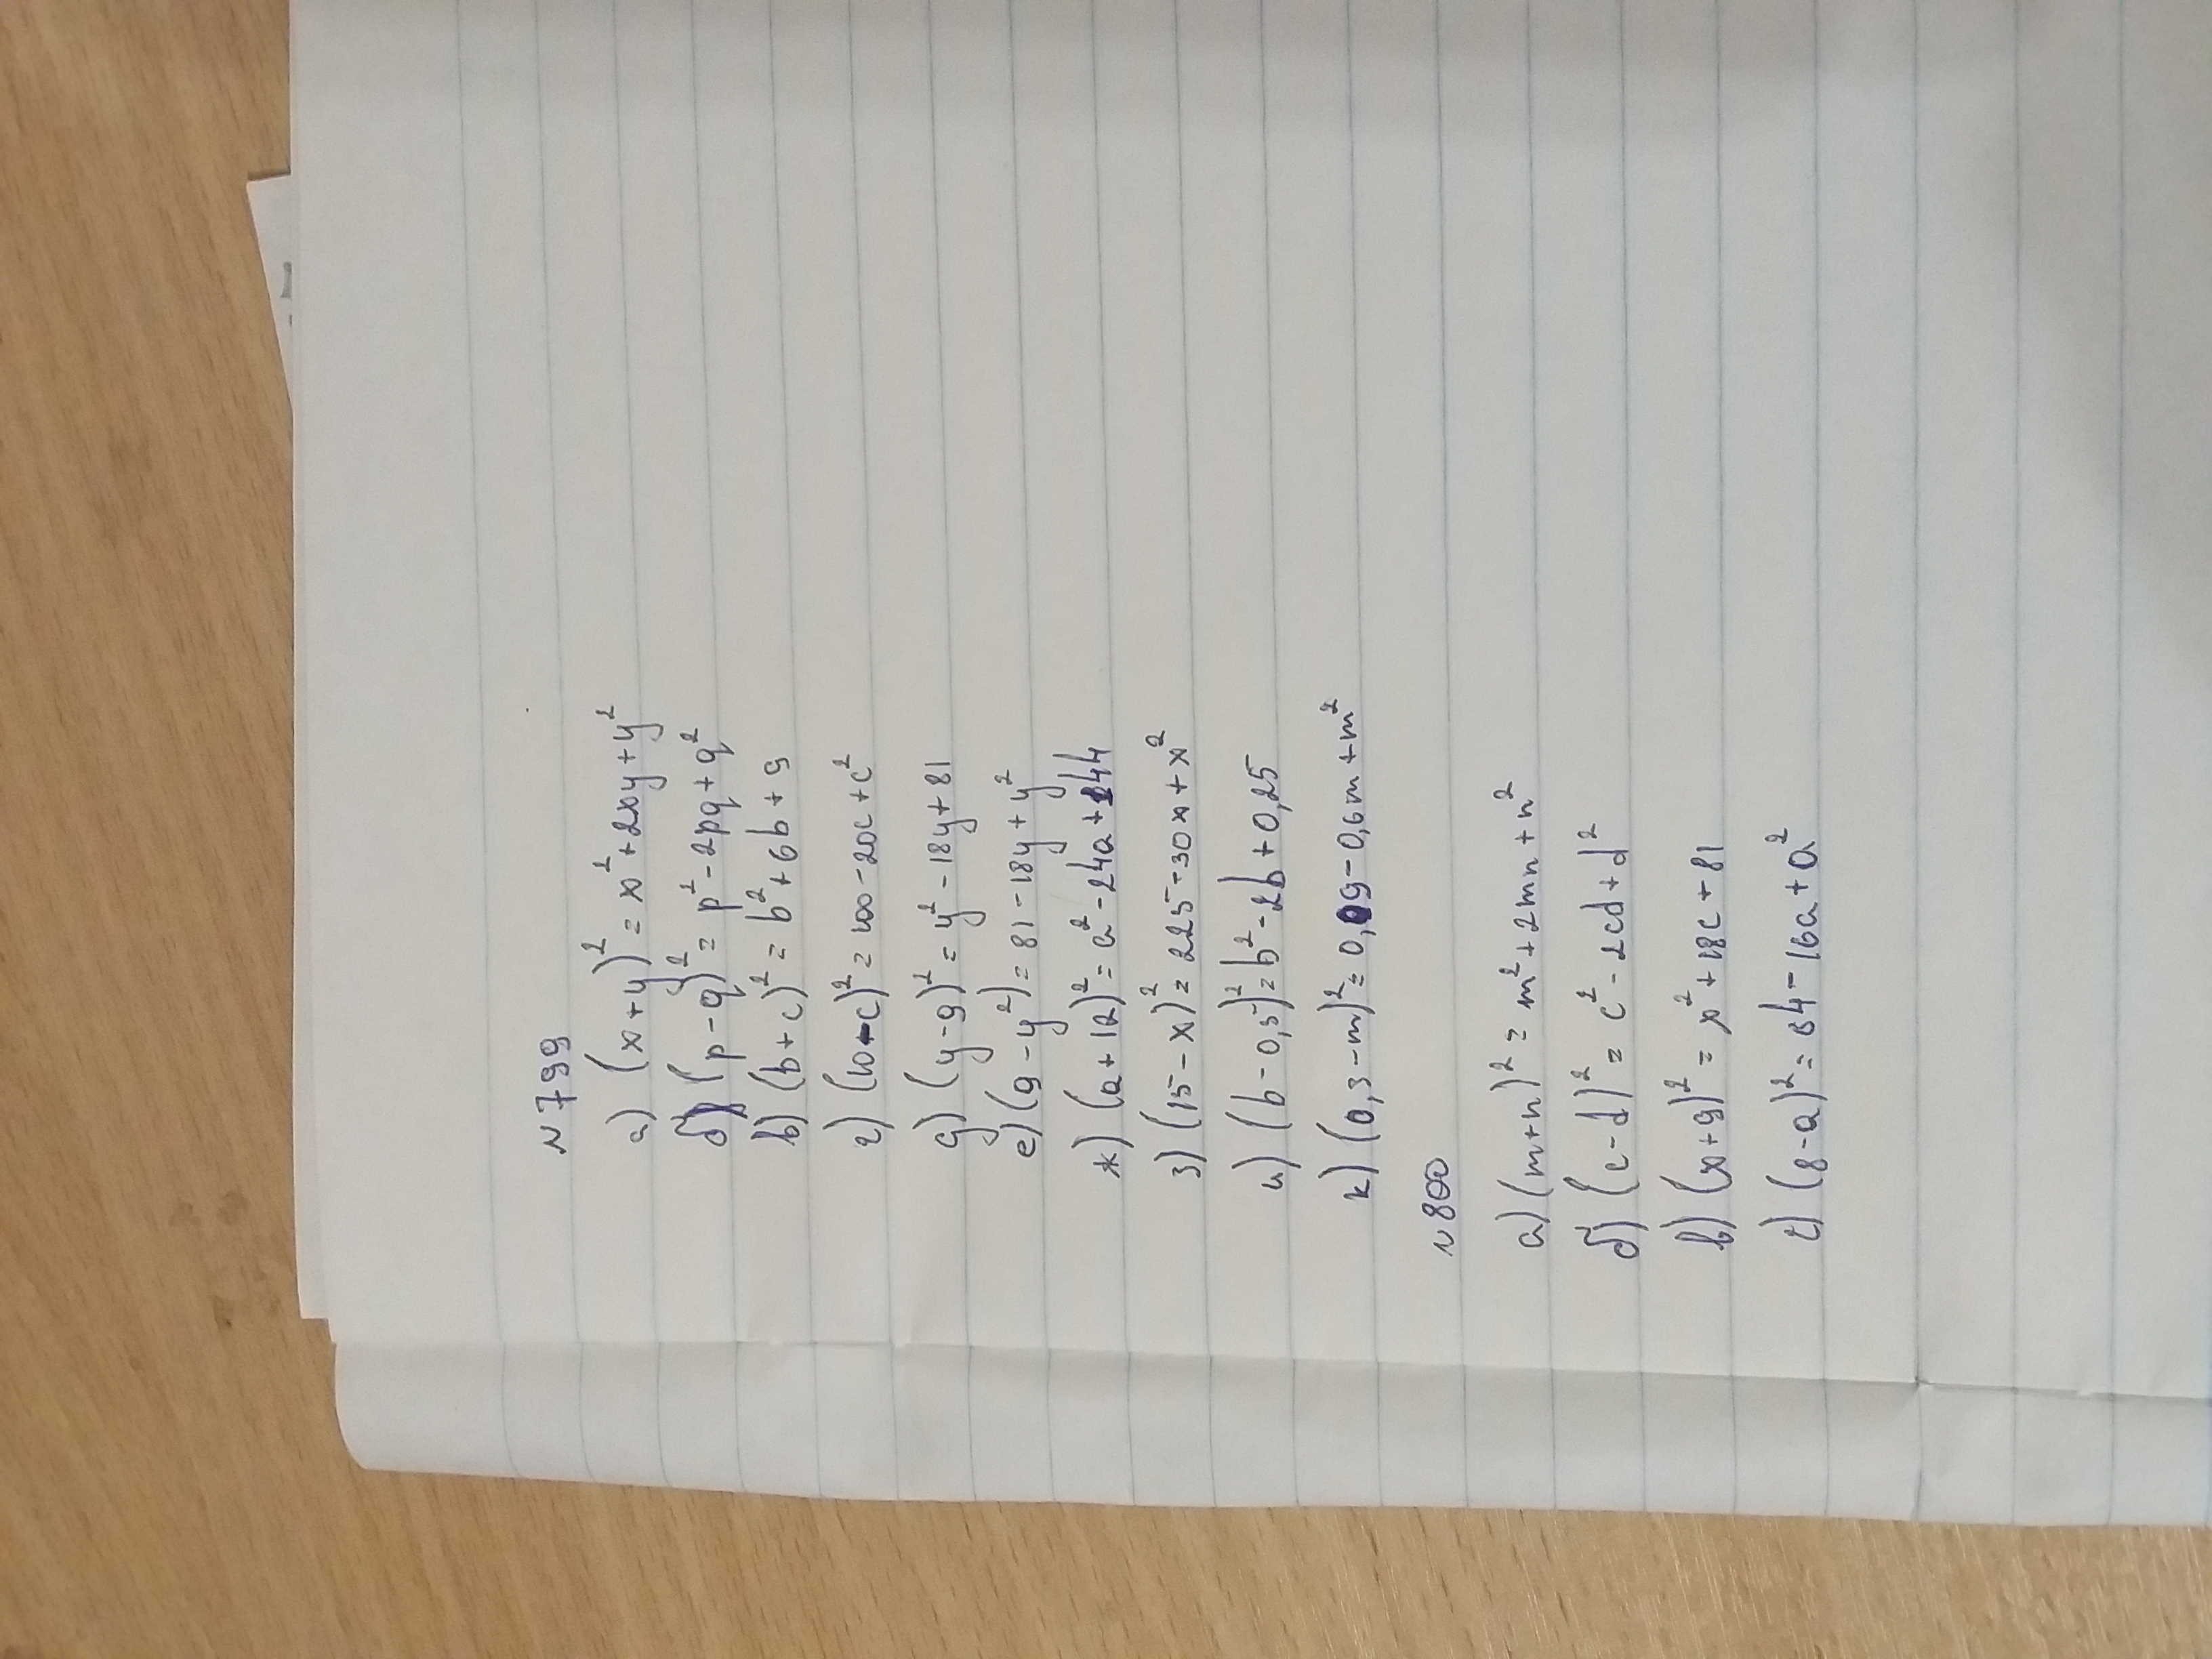 N 799
а) (x+y)² = x²+2xy+y²
б) (p-q)² = p²-2pq+q²
в) (b+c)² = b²+6b+9
г) (10-c)² = 100-20c+c²
д) (y-9)² = y²-18y+81
е) (9-y²) = 81-18y+y²
ж) (a+12)² = a²-24a+144
з) (15-x)² = 225-30x+x²
и) (b-0,5)² = b²-2b+0,25
к) (0,3-m)² = 0,09-0,6m+m²
N 800
а) (m+n)² = m²+2mn+n²
б) (c-d)² = c²-2cd+d²
в) (x+9)² = x²+18c+81
г) (8-a)² = 64-16a+a²